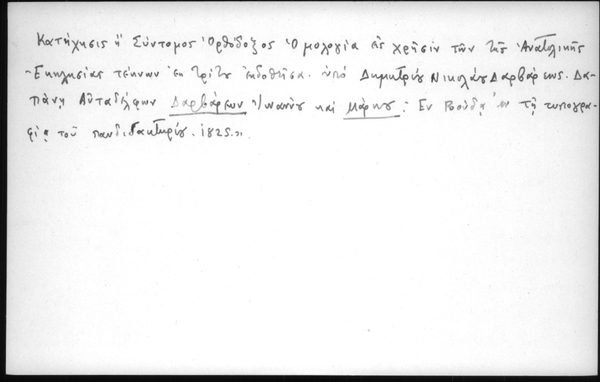 Κατήχησις ἤ Σύντομος Ὀρθόδοξος Ὁμολογία εἰς χρῆσιν τῶν τῆς Ἀνατολικῆς
Ἐκκλησίας τέκνων ἐκ τρίτου ἐκδοθεῖσα. ὑπό Δημητρίου Νικολάου Δαρβάρεως. Δα-
πάνῃ Αὐταδέλφων Δαρβάρεων Ἰωάννου καί Μάρκου: Ἐν Βούδᾳ ἐν τῇ τυπογρα-
φίᾳ τοῦ πανδιδακτηρίου. 1825.»